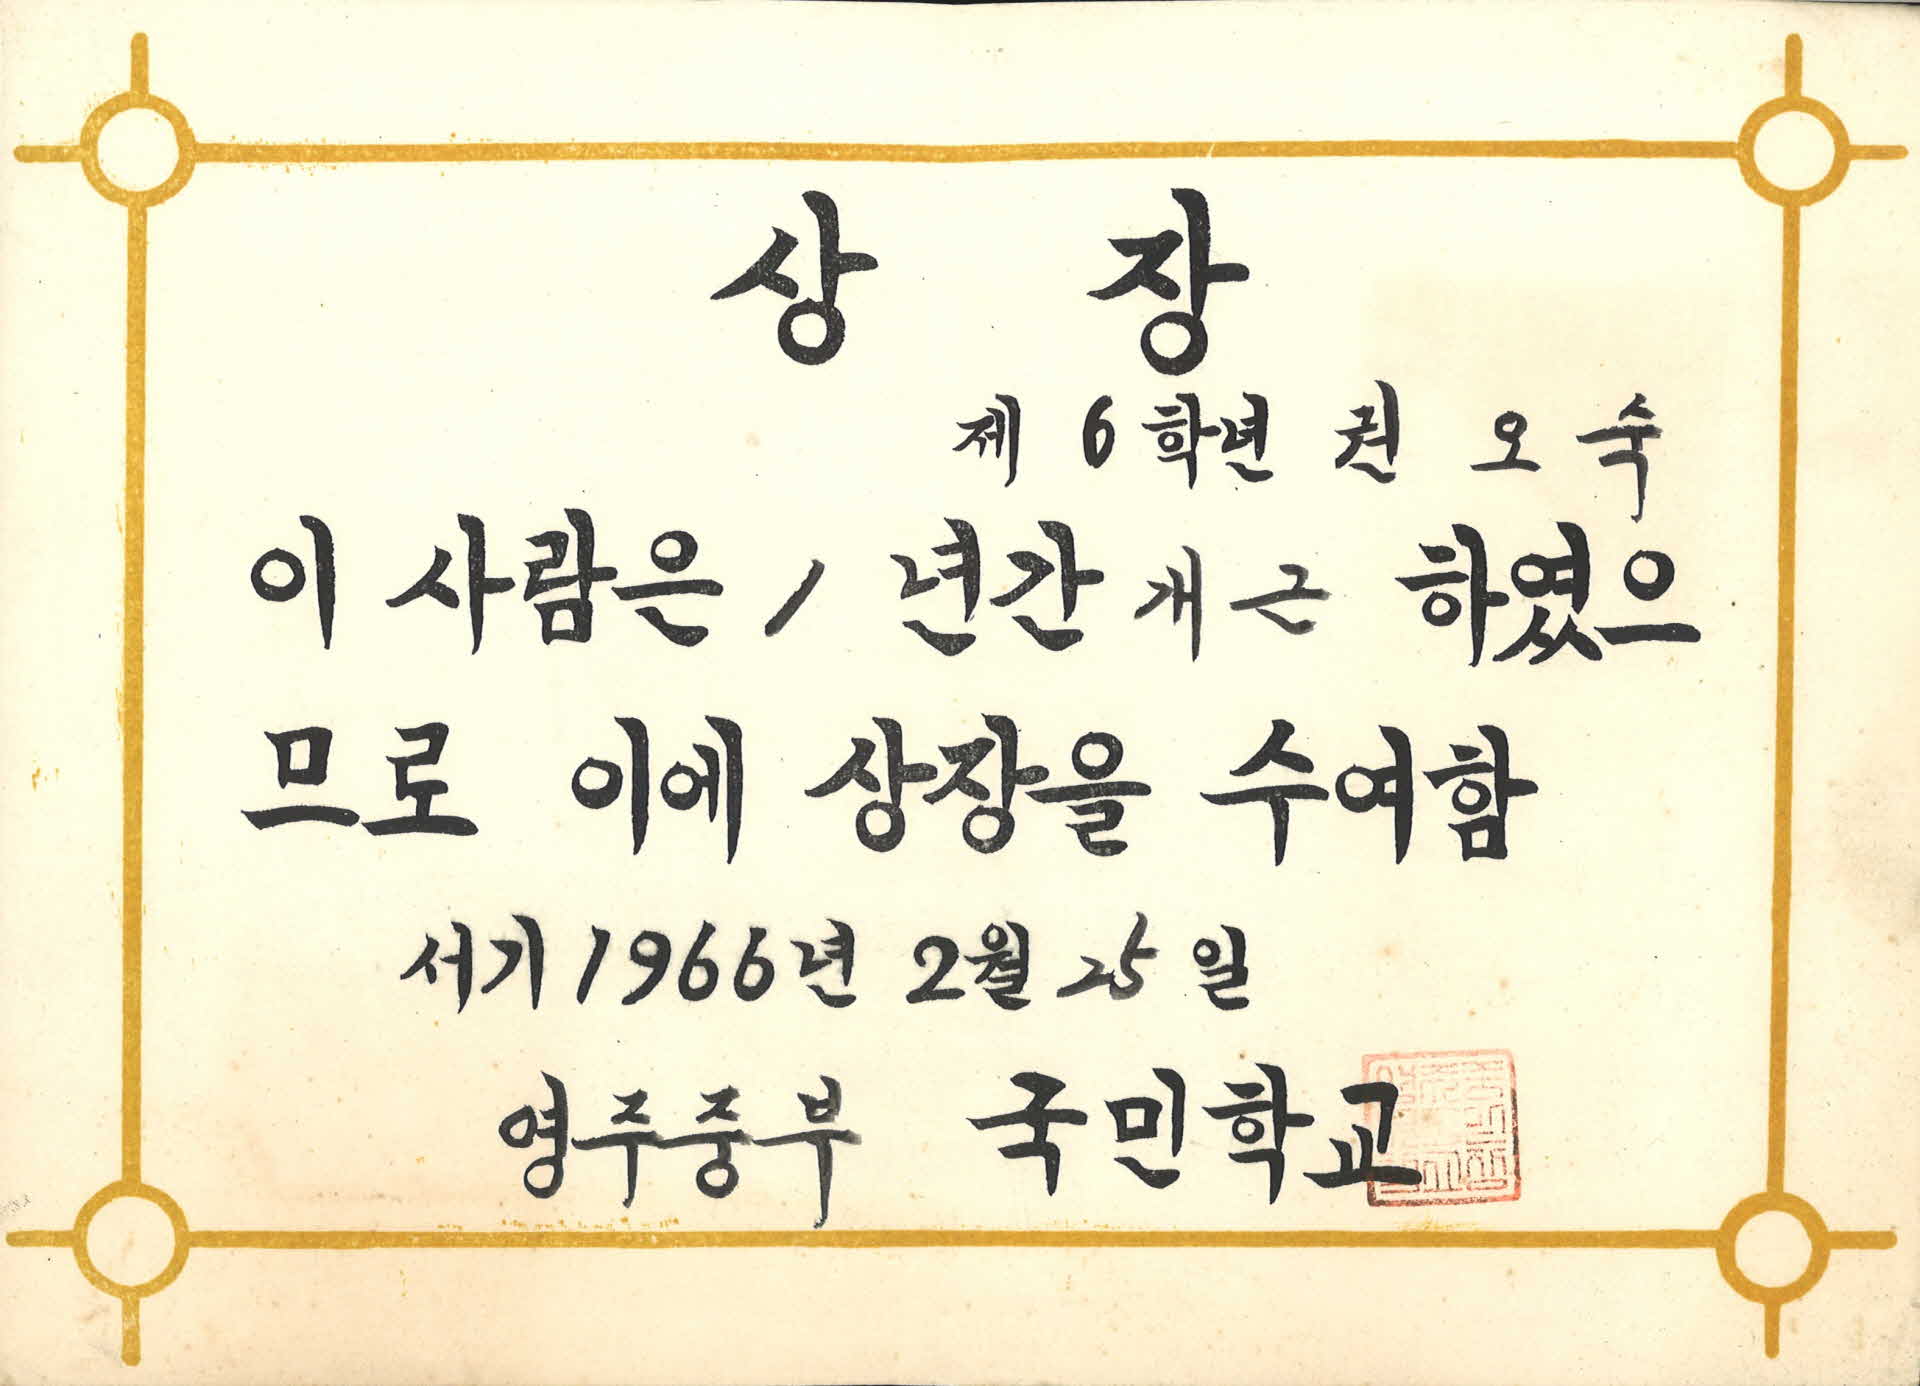 상 장
제 6 학년 권 오 숙
이 사람은 1 년간 개근 하였으
므로 이에 상장을 수여함
서기 1966년 2월 25 일
영주중부 국민학교